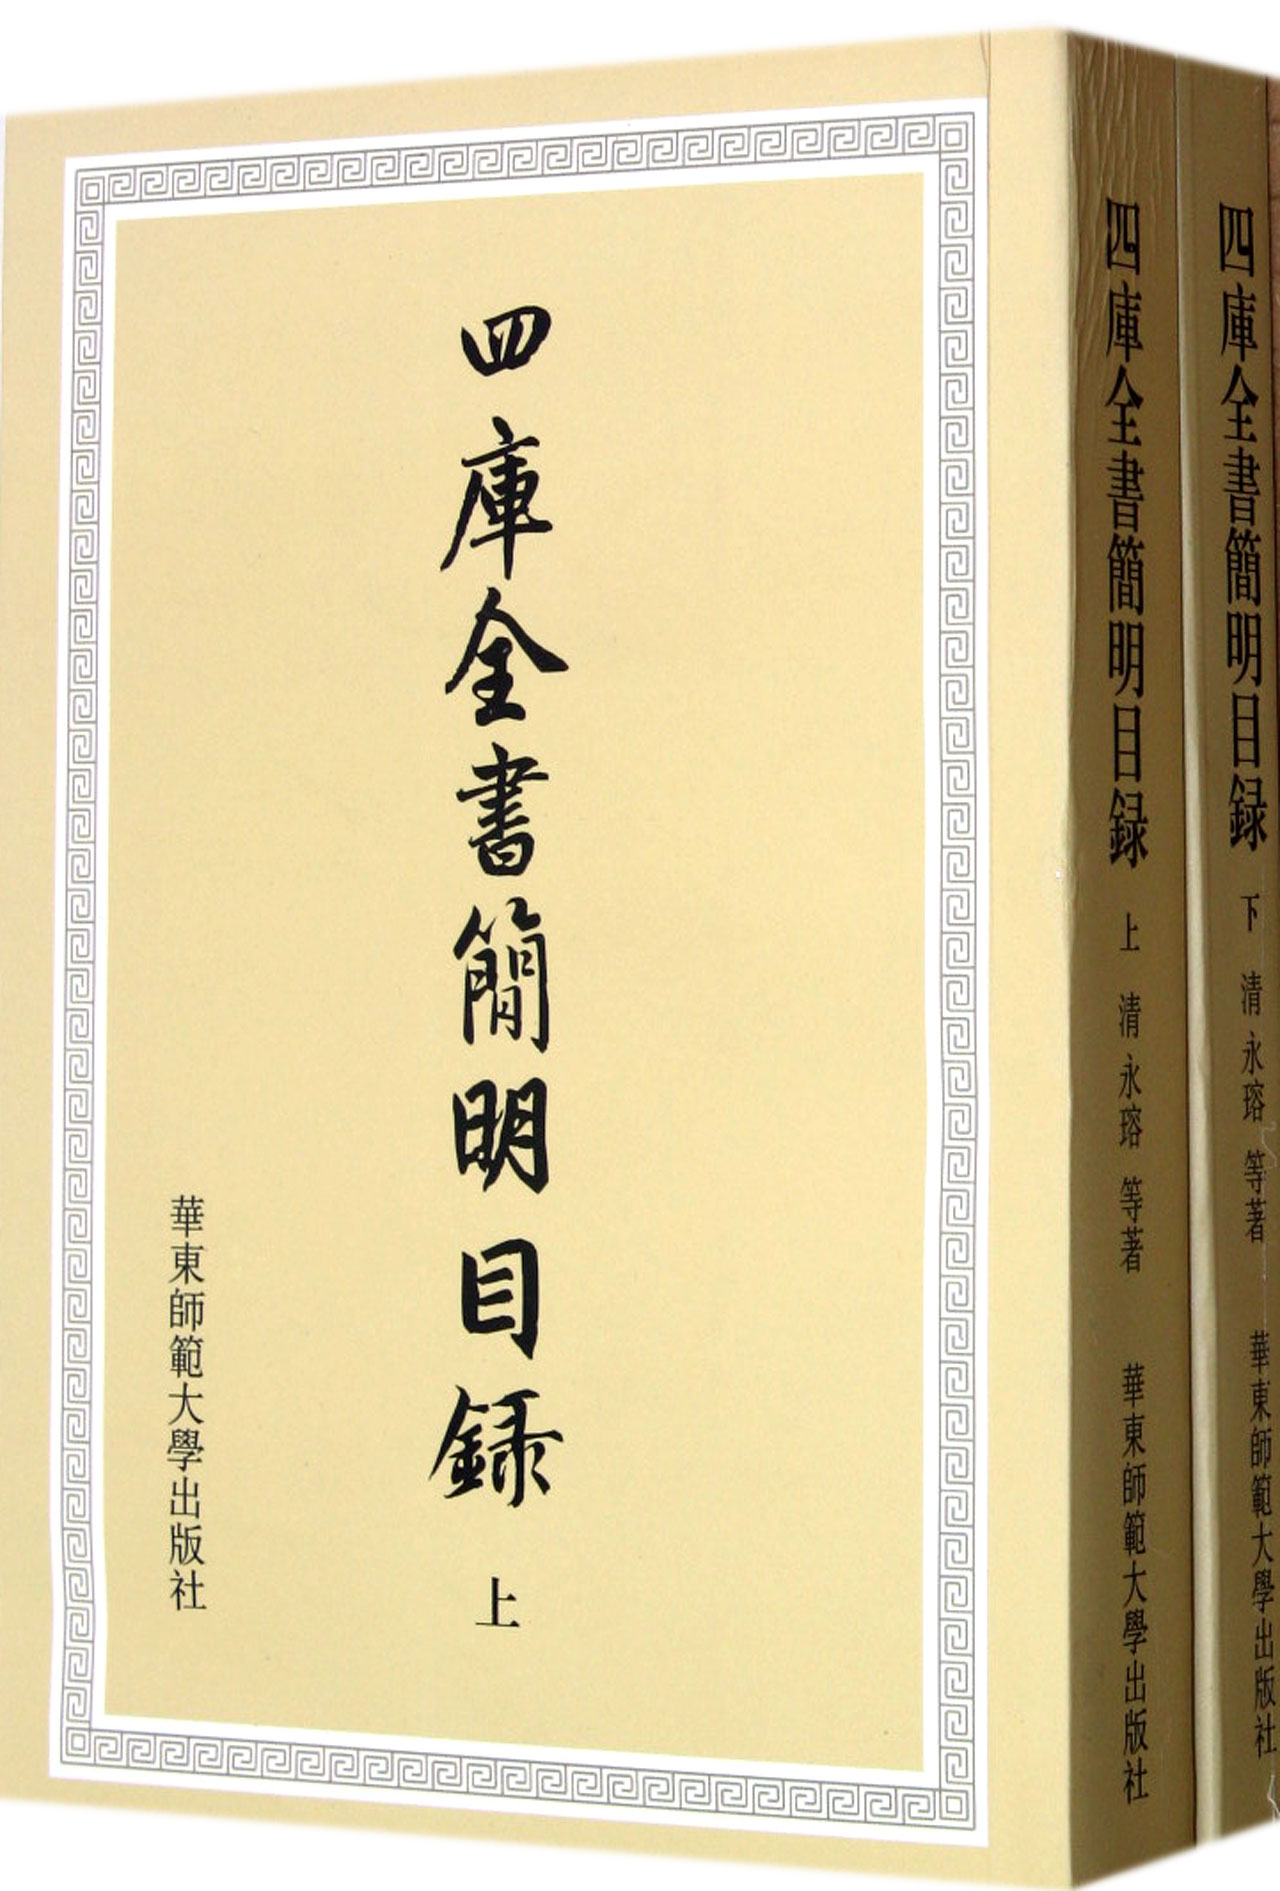 四庫全書簡明目録 上
華東師範大學出版社
四庫全書簡明目録 上 清 永瑢 等著 華東師範大學出版社
四庫全書簡明目録 下 清 永瑢 等著 華東師範大學出版社